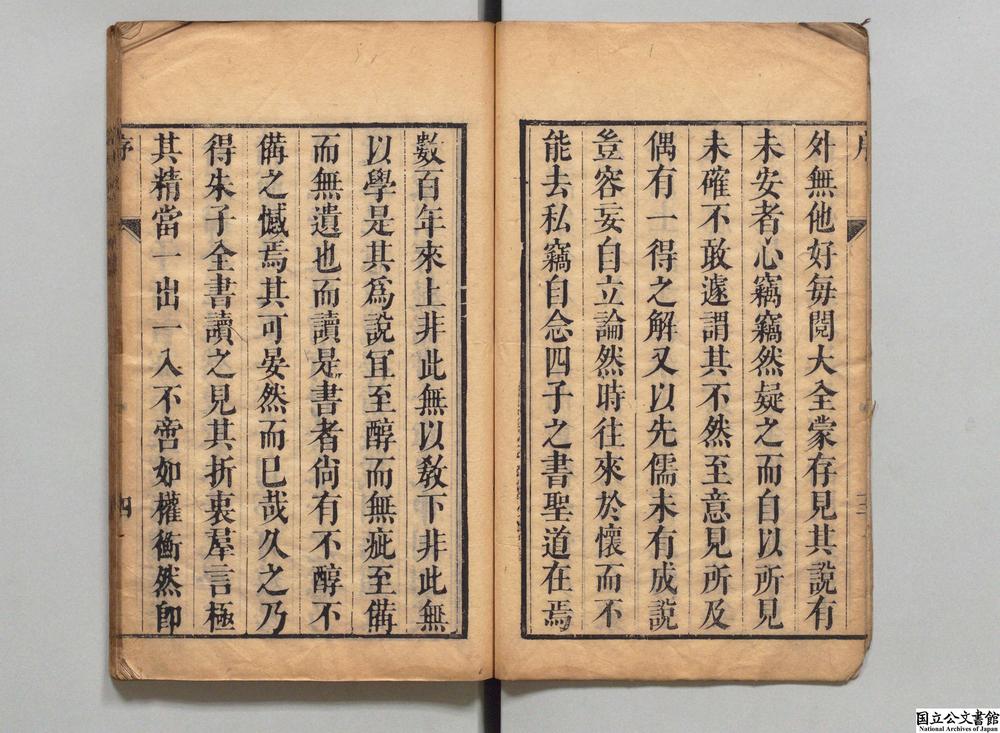 外無他好每閱大全蒙存見其說有
未安者心竊竊然疑之而自以所見
未確不敢遽謂其不然至意見所及
偶有一得之解又以先儒未有成說
豈容妄自立論然時往來於懷而不
能去私竊自念四子之書聖道在焉
數百年來上非此無以敎下非此無
以學是其爲說宜至醇而無疵至備
而無遺也而讀是書者尙有不醇不
備之憾焉其可晏然而已哉久之乃
得朱子全書讀之見其折衷羣言極
其精當一出一入不啻如權衡然卽
序
四
国立公文書館
National Archives of Japan